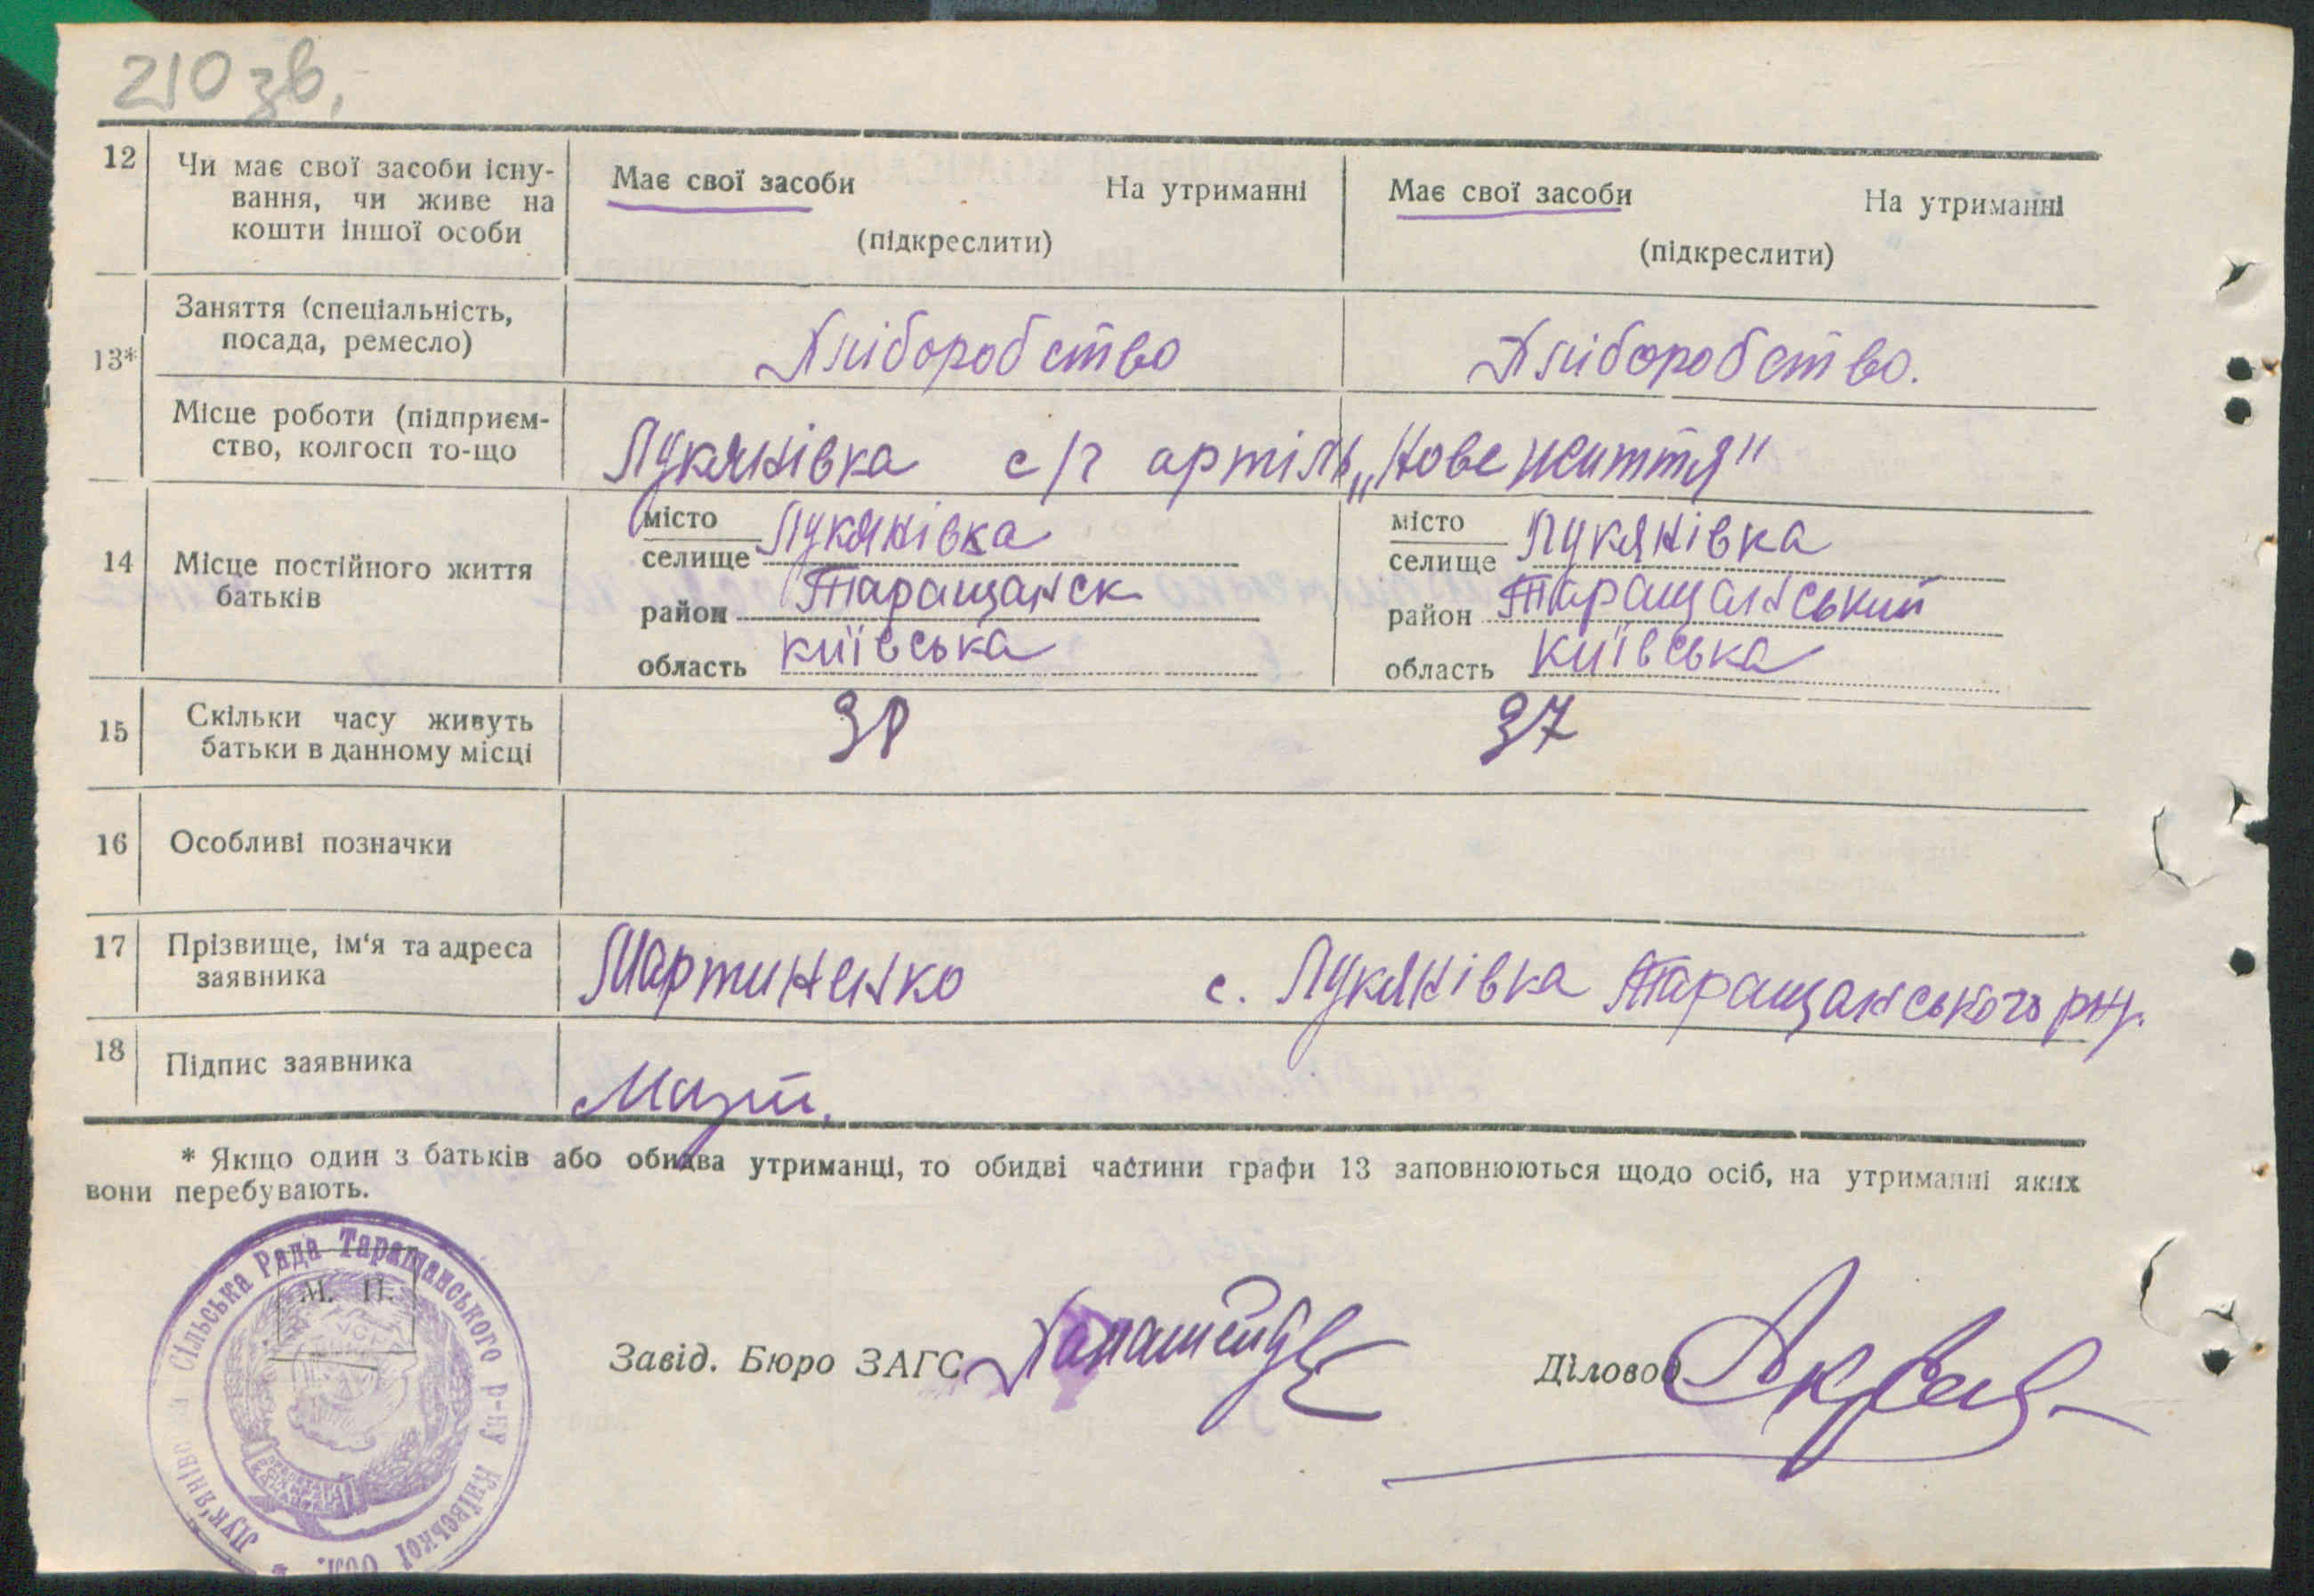 210 зв.
12 Чи має свої засоби існу-
вання, чи живе на
кошти іншої особи
Має свої засоби На утриманні
(підкреслити)
Має свої засоби На утриманні
(підкреслити)
13*
Заняття (спеціальність,
посада, ремесло)
Хліборобство
Хліборобство.
Місце роботи (підприєм-
ство, колгосп то-що
Лукянівка с/г артіль „Нове життя"
14 Місце постійного життя
батьків
місто
селище Лукянівка
район Таращанск
область київська
місто
селище Лукянівка
район Таращанський
область київська
15 Скільки часу живуть
батьки в данному місці
38
37
16 Особливі позначки
17 Прізвище, ім'я та адреса
заявника
Мартиненко с. Лукянівка Таращанського р-ну.
18 Підпис заявника
* Якщо один з батьків або обидва утриманці, то обидві частини графи 13 заповнюються щодо осіб, на утриманні яких
вони перебувають.
М. П.
Сільська Рада Таращанського р-ну Київської Обл.
Завід. Бюро ЗАГС
Діловод